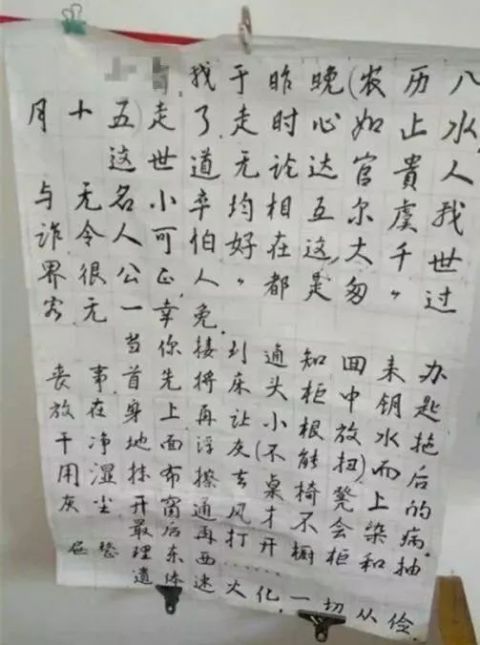 我于昨晚(农历八
月十五)走了走时心如止水,
这世道无论达官贵人
与无名小卒均相互尔虞我
诈令人可怕好在这大千世
界很公正,人〃都是匆〃过
客无一幸免.
当你接到通知回来办
丧事首先将床头柜中钥匙
放在身上再让小根放水拖
干净地面浮灰(不能扭)而后
用湿抹布擦去桌椅凳上的
灰尘开窗通风才不会染病.
最后再打开橱柜和抽
屉整理东西……
遗体速火化,一切从俭.